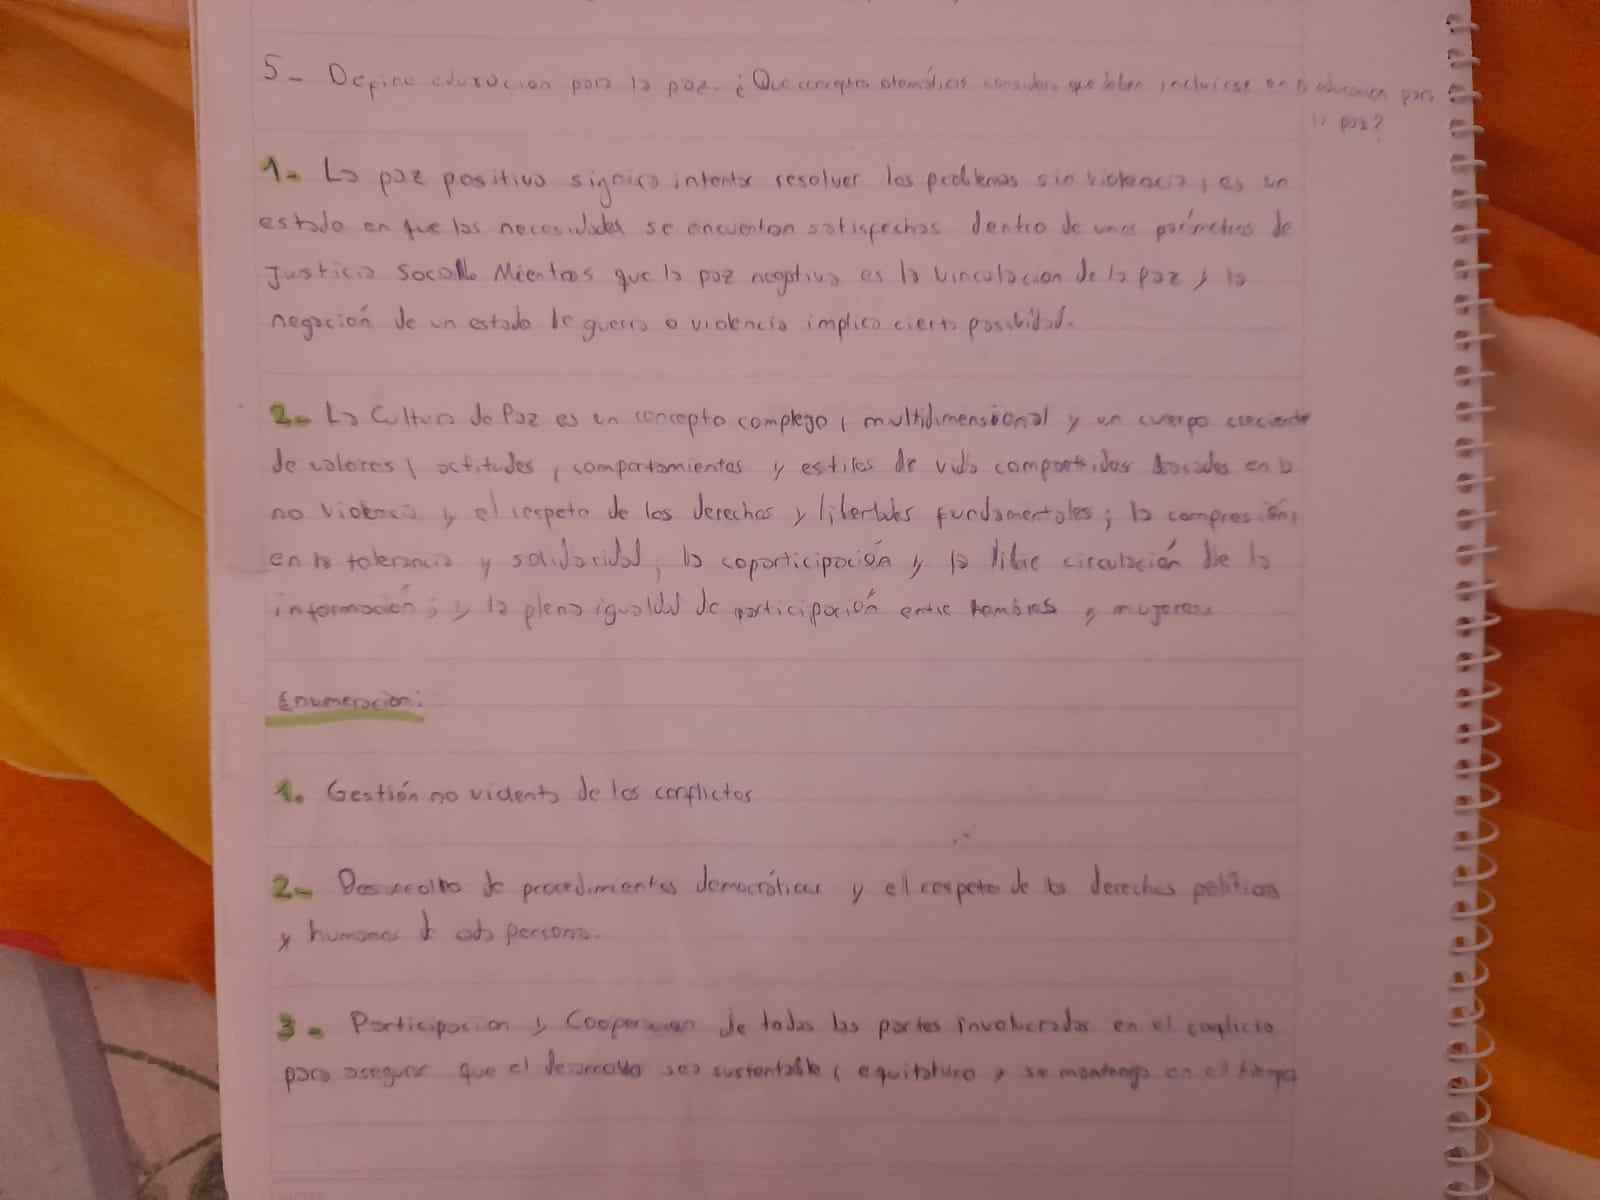 5- Define educacion para la paz. ¿Que conceptos considera que deben incluirse en la educacion para
la paz?
1- La paz positiva signica intentar resolver los problemas sin violencia, es un
estado en que las necesidades se encuentran satisfechas dentro de unos parámetros de
Justicia Social. Mientras que la paz negativa es la vinculacion de la paz y la
negación de un estado de guerra o violencia implica cierta pasividad.
2- La Cultura de Paz es un concepto complego, multidimensional y un cuerpo creciente
de valores, actitudes, comportamientos y estilos de vida compartidos basados en la
no violencia y el respeto de los derechos y libertades fundamentales; la compresión,
en la tolerancia y solidaridad, la coparticipación y la libre circulación de la
información; y la plena igualdad de participación entre hombres y mujeres.
Enumeracion:
1. Gestión no violenta de los conflictos
2- Desarrollo de procedimientos democráticos y el respeto de los derechos políticos
y humanos de cada persona.
3- Participacion y Cooperacion de todas las partes involucradas en el conflicto
para asegurar que el desarrollo sea sustentable, equitativo y se mantenga en el tiempo